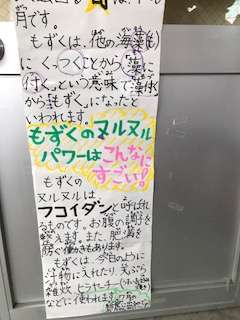 です。
もずくは、他の海藻(も)
にくっつくことから「藻に
付く」という意味で藻付
からもずく」になったと
いわれます。
もずくのヌルヌル
パワーはこんなに
すごい!
もずくの
ヌルヌルは、
フコイダンと呼ばれ
るものです。お腹の調子を
整えます。また、肥満を
防ぐ働きもあります。
もずくは、今日のように
汁物に入れたり、天ぷら
雑炊、ヒラヤーチー
などに使われます。